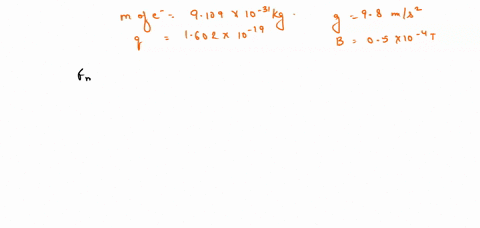 m of e⁻ = 9.109 × 10⁻³¹ kg . g = 9.8 m/s²
q = 1.602 × 10⁻¹⁹ B = 0.5 × 10⁻⁴ T
Fm